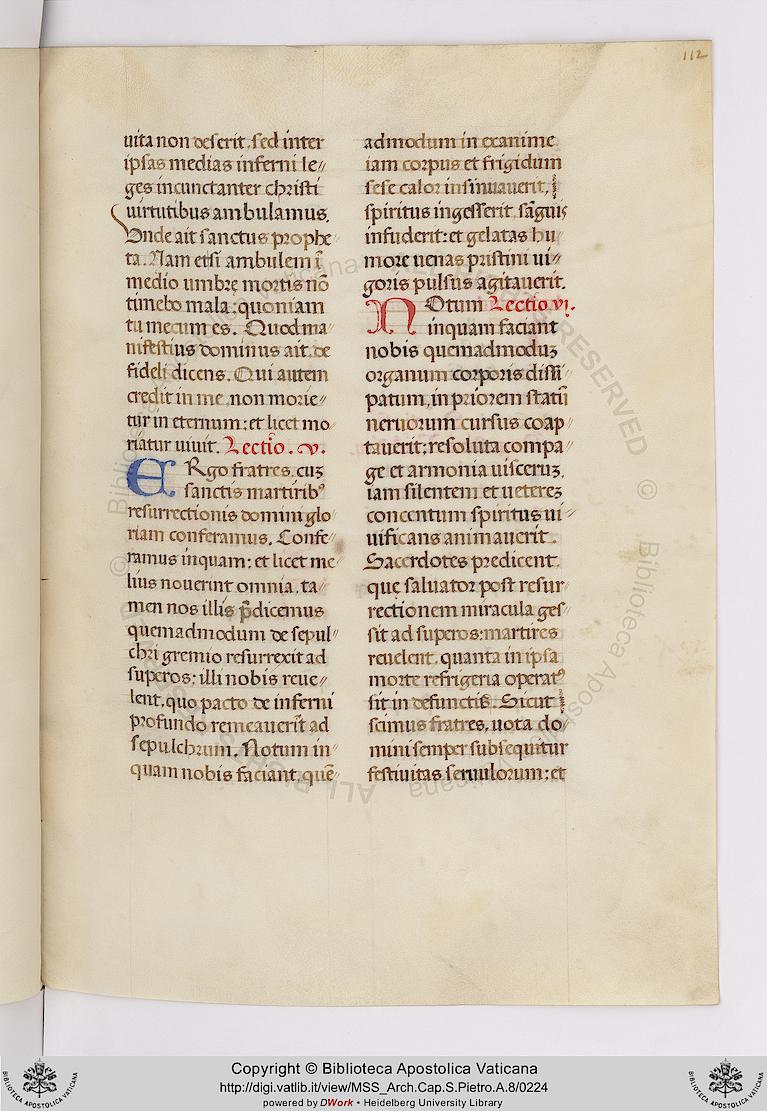 112
uita non deserit. sed inter
ipsas medias inferni le〃
ges incunctanter christi
uirtutibus ambulamus.
Unde ait sanctus prophe〃
ta. Nam etsi ambulem ī
medio umbrę mortis nō
timebo mala: quoniam
tu mecum es. Quod ma〃
nifestius dominus ait. de
fideli dicens. Qui autem
credit in me, non morie〃
tur in eternum: et licet mo〃
riatur uiuit. Lectio. v.
ERgo fratres. cuꝫ
sanctis martiribꝰ
resurrectionis domini glo〃
riam conferamus. Confe〃
ramus inquam: et licet me〃
lius nouerint omnia, ta〃
men nos illis p̄dicemus
quemadmodum de sepul〃
chri gremio resurrexit ad
superos: illi nobis reue〃
lent. quo pacto de inferni
profundo remeauerit ad
sepulchrum. Notum in〃
quam nobis faciant, quē〃
admodum in exanime
iam corpus et frigidum
sese calor insinuauerit,
spiritus ingesserit. sāguis
infuderit: et gelatas hu〃
more uenas pristini ui〃
goris pulsus agitauerit.
NOtum Lectio vi.
inquam faciant
nobis quemadmoduꝫ
organum corporis dissi〃
patum, in priorem statū
neruorum cursus coap〃
tauerit: resoluta compa〃
ge et armonia uisceruꝫ.
iam silentem et uetereꝫ
concentum spiritus ui〃
uificans animauerit.
Sacerdotes predicent.
quę saluator post resur〃
rectionem miracula ges〃
sit ad superos: martires
reuelent. quanta in ipsa
morte refrigeria operatꝰ
sit in defunctis. Sicut
scimus fratres. uota do〃
mini semper subsequitur
festiuitas seruulorum: et
Copyright © Biblioteca Apostolica Vaticana
http://digi.vatlib.it/view/MSS_Arch.Cap.S.Pietro.A.8/0224
powered by DWork • Heidelberg University Library
BIBLIOTECA APOSTOLICA VATICANA
BIBLIOTECA APOSTOLICA VATICANA